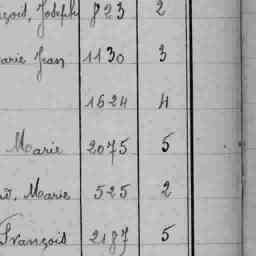 Joseph 823 2
arie Jean 1130 3
1624 4
Marie 2075 5
Marie 525 2
François 2187 5